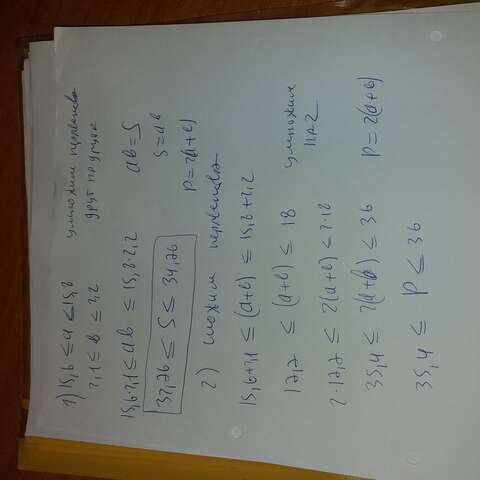 1) 15,6 ≤ a ≤ 15,8 умножим неравенства
2,1 ≤ в ≤ 2,2 друг на друга
15,6·2,1 ≤ aв ≤ 15,8·2,2 aв = S
32,76 ≤ S ≤ 34,76 S = aв
P = 2(a+в)
2) сложим неравенства
15,6+2,1 ≤ (a+в) ≤ 15,8+2,2
17,7 ≤ (a+в) ≤ 18 умножим
на 2
2·17,7 ≤ 2(a+в) ≤ 2·18
35,4 ≤ 2(a+в) ≤ 36 P = 2(a+в)
35,4 ≤ P ≤ 36